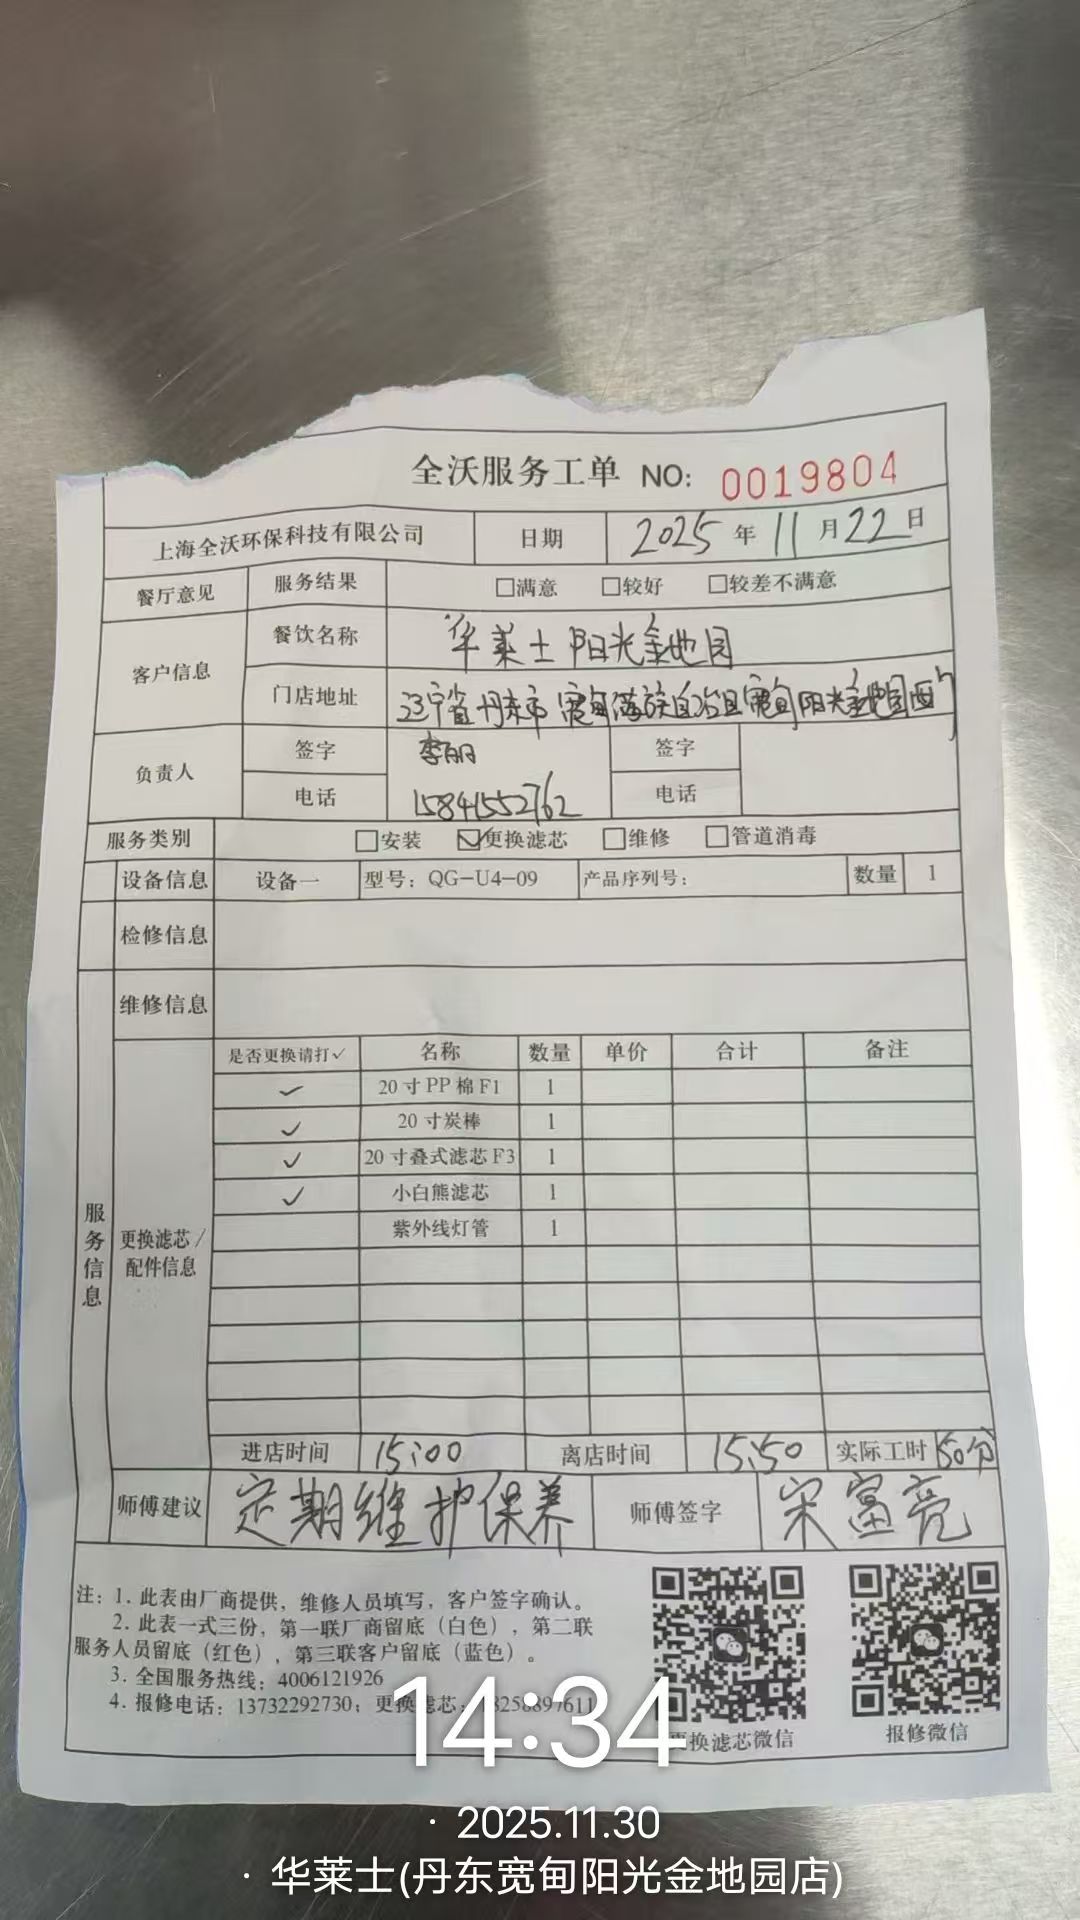 全沃服务工单 NO: 0019804
上海全沃环保科技有限公司 日期 2025 年 11 月 22 日
餐厅意见 服务结果 □满意 □较好 □较差不满意
客户信息 餐饮名称 华莱士阳光金地园
门店地址 辽宁省丹东市宽甸满族自治区宽甸阳光金地园西门
负责人 签字 李丽 签字
电话 15841552762 电话
服务类别 □安装 ☑更换滤芯 □维修 □管道消毒
设备信息 设备一 型号：QG-U4-09 产品序列号： 数量 1
检修信息
维修信息
服务信息
更换滤芯/
配件信息
是否更换请打✓ 名称 数量 单价 合计 备注
✓ 20寸PP棉F1 1
✓ 20寸炭棒 1
✓ 20寸叠式滤芯F3 1
✓ 小白熊滤芯 1
紫外线灯管 1
进店时间 15:00 离店时间 15:50 实际工时 50分
师傅建议 定期维护保养 师傅签字 宋富亮
注：1. 此表由厂商提供，维修人员填写，客户签字确认。
2. 此表一式三份，第一联厂商留底（白色），第二联
服务人员留底（红色），第三联客户留底（蓝色）。
3. 全国服务热线：4006121926
4. 报修电话：13732292730；更换滤芯：
换滤芯微信 报修微信
14:34
· 2025.11.30
· 华莱士(丹东宽甸阳光金地园店)